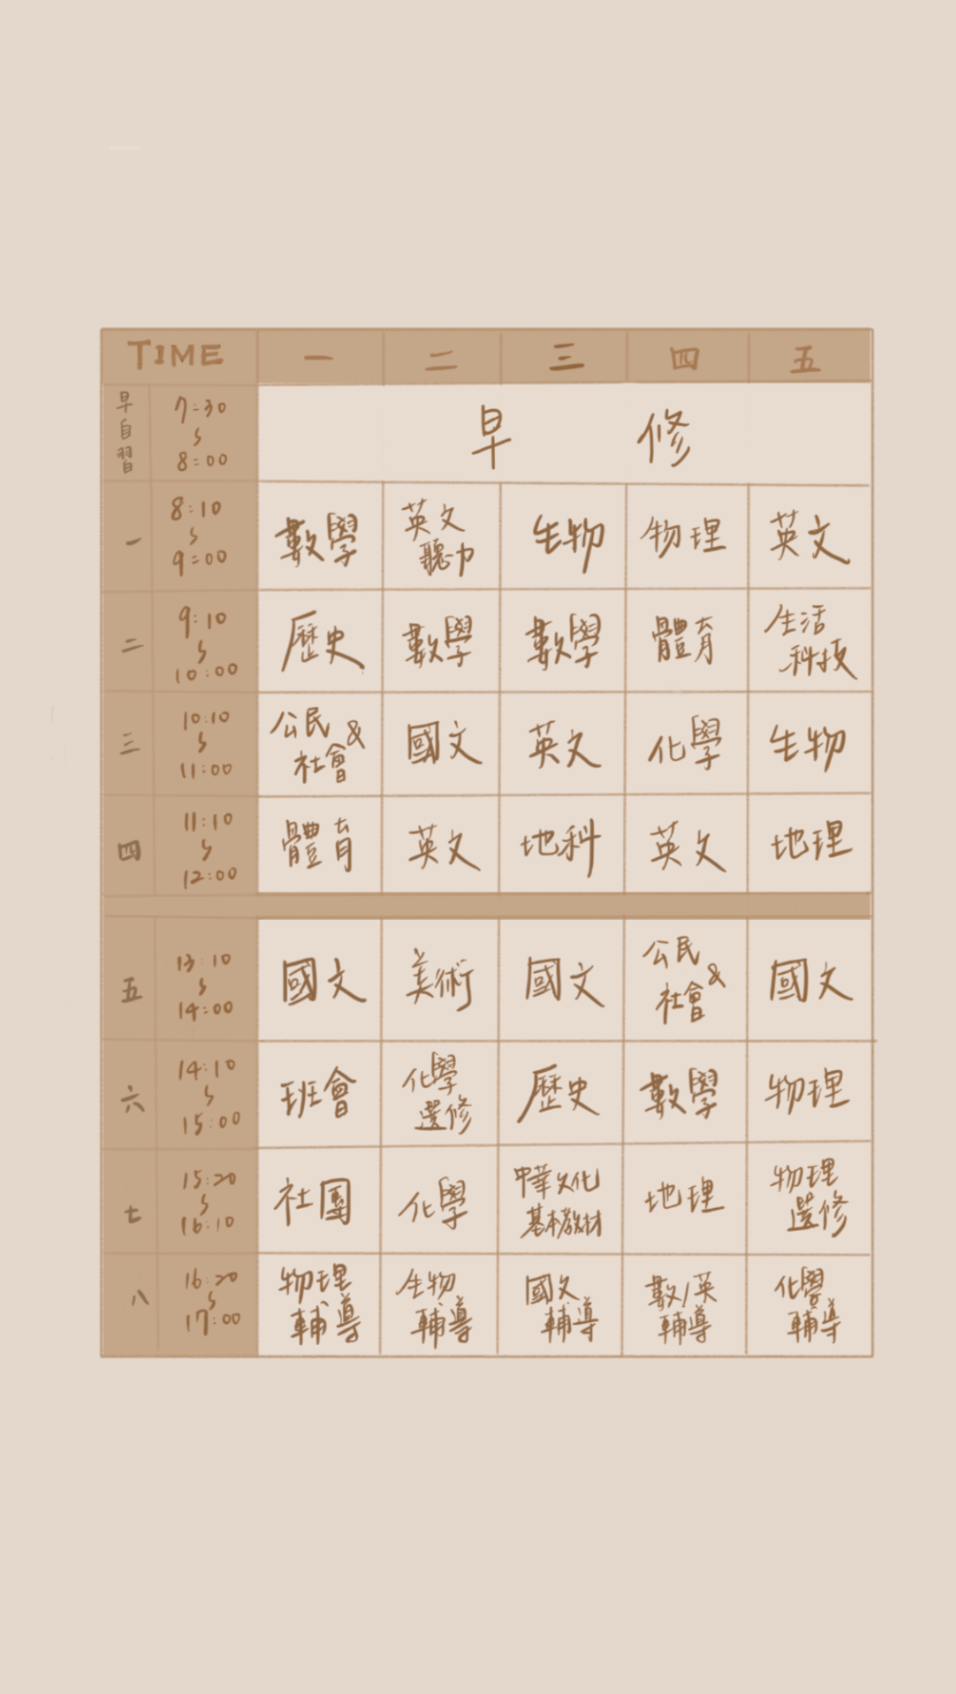 TIME 一 二 三 四 五
早自習 7:30 ~ 8:00 早修
一 8:10 ~ 9:00 數學 英文聽力 生物 物理 英文
二 9:10 ~ 10:00 歷史 數學 數學 體育 生活科技
三 10:10 ~ 11:00 公民&社會 國文 英文 化學 生物
四 11:10 ~ 12:00 體育 英文 地科 英文 地理
五 13:10 ~ 14:00 國文 美術 國文 公民&社會 國文
六 14:10 ~ 15:00 班會 化學選修 歷史 數學 物理
七 15:20 ~ 16:10 社團 化學 中華文化基本教材 地理 物理選修
八 16:20 ~ 17:00 物理輔導 生物輔導 國文輔導 數/英輔導 化學輔導